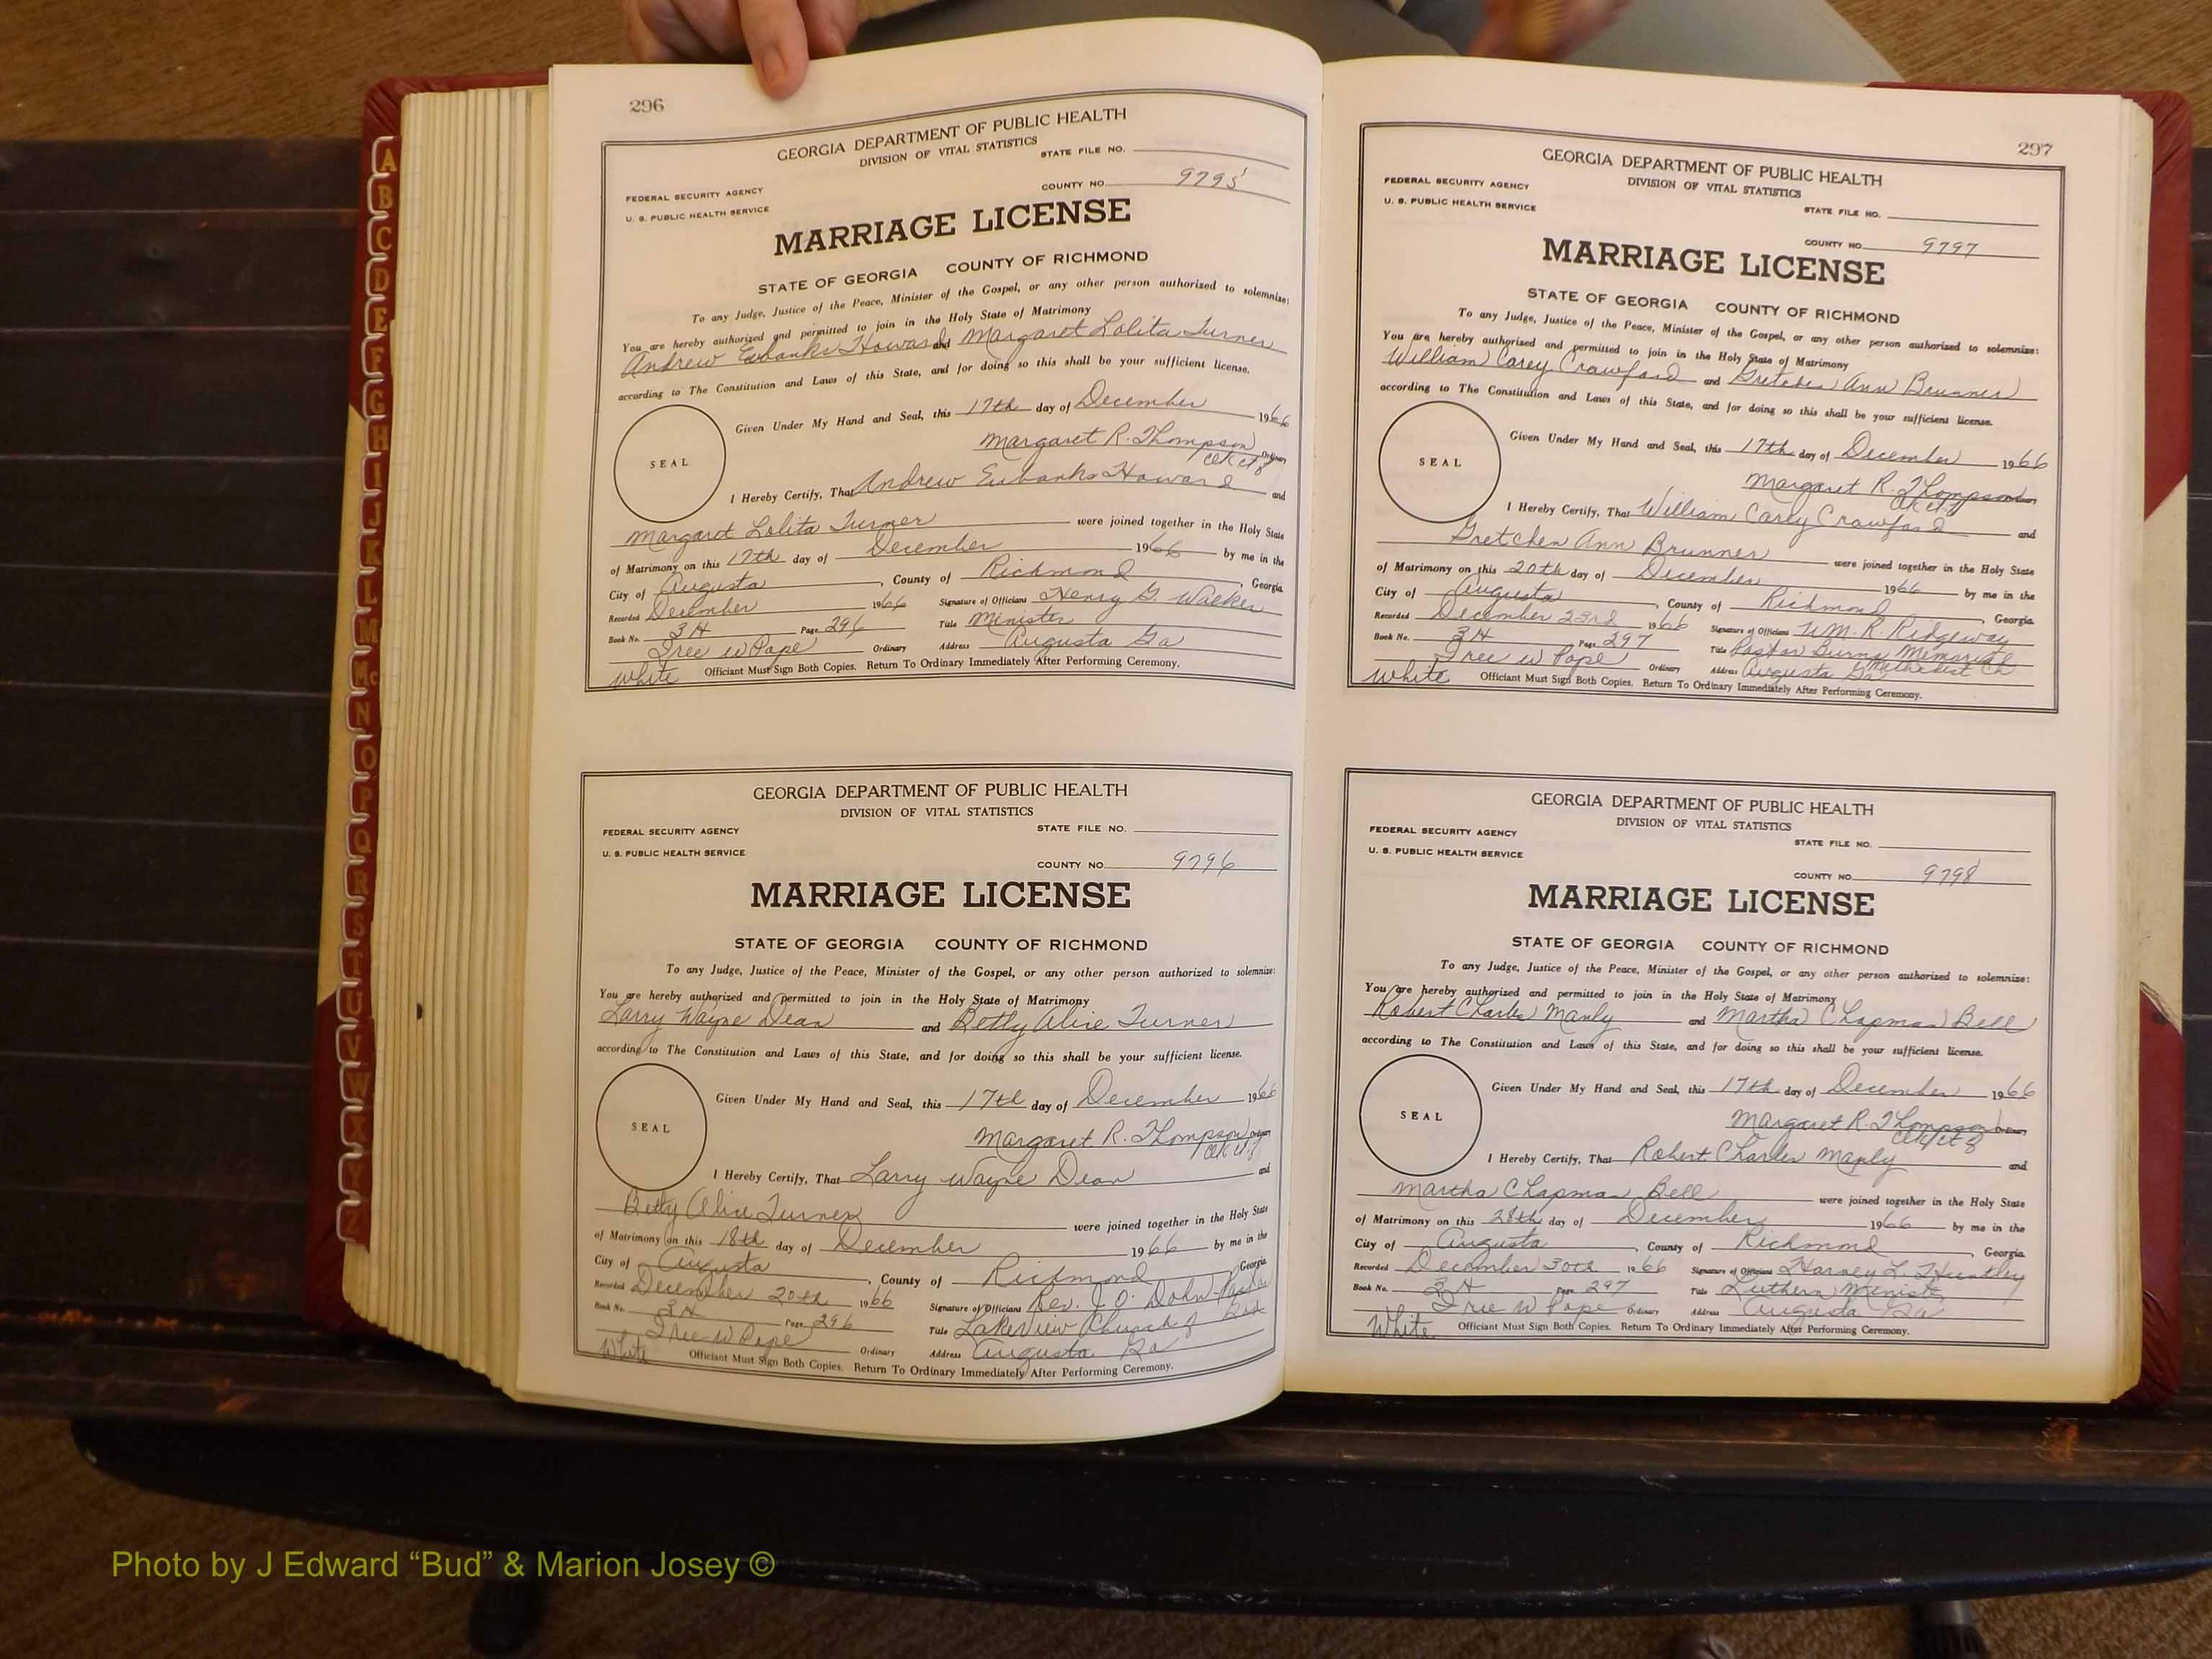 A
B
C
D
E
F
G
H
I
J
K
L
M
Mc
N
O
P
Q
R
S
T
U
V
W
X
Y
Z
296
GEORGIA DEPARTMENT OF PUBLIC HEALTH
DIVISION OF VITAL STATISTICS
STATE FILE NO.
FEDERAL SECURITY AGENCY
COUNTY NO. 9795
U. S. PUBLIC HEALTH SERVICE
MARRIAGE LICENSE
STATE OF GEORGIA COUNTY OF RICHMOND
To any Judge, Justice of the Peace, Minister of the Gospel, or any other person authorized to solemnize:
You are hereby authorized and permitted to join in the Holy State of Matrimony
Andrew Eubanks Howard and Margaret Lolita Turner
according to The Constitution and Laws of this State, and for doing so this shall be your sufficient license.
Given Under My Hand and Seal, this 17th day of December 1966
Margaret R. Thompson Ordinary
SEAL
I Hereby Certify, That Andrew Eubanks Howard and
Margaret Lolita Turner were joined together in the Holy State
of Matrimony on this 17th day of December 1966 by me in the
City of Augusta, County of Richmond, Georgia.
Recorded December 1966 Signature of Officiant Henry G. Walker
Book No. 3H Page 296 Title Minister
Free W Pope Ordinary Address Augusta Ga
White Officiant Must Sign Both Copies. Return To Ordinary Immediately After Performing Ceremony.
GEORGIA DEPARTMENT OF PUBLIC HEALTH
DIVISION OF VITAL STATISTICS
FEDERAL SECURITY AGENCY STATE FILE NO.
U. S. PUBLIC HEALTH SERVICE
COUNTY NO. 9796
MARRIAGE LICENSE
STATE OF GEORGIA COUNTY OF RICHMOND
To any Judge, Justice of the Peace, Minister of the Gospel, or any other person authorized to solemnize:
You are hereby authorized and permitted to join in the Holy State of Matrimony
Larry Wayne Dean and Betty Alice Turner
according to The Constitution and Laws of this State, and for doing so this shall be your sufficient license.
Given Under My Hand and Seal, this 17th day of December 1966
Margaret R. Thompson Ordinary
SEAL
I Hereby Certify, That Larry Wayne Dean and
Betty Alice Turner were joined together in the Holy State
of Matrimony on this 18th day of December 1966 by me in the
City of Augusta, County of Richmond, Georgia.
Recorded December 20th 1966 Signature of Officiant Rev. J. O.
Book No. 3H Page 296 Title Lakeview Church of
Free W Pope Ordinary Address Augusta Ga
White Officiant Must Sign Both Copies. Return To Ordinary Immediately After Performing Ceremony.
297
GEORGIA DEPARTMENT OF PUBLIC HEALTH
DIVISION OF VITAL STATISTICS
FEDERAL SECURITY AGENCY
U. S. PUBLIC HEALTH SERVICE
STATE FILE NO.
COUNTY NO. 9797
MARRIAGE LICENSE
STATE OF GEORGIA COUNTY OF RICHMOND
To any Judge, Justice of the Peace, Minister of the Gospel, or any other person authorized to solemnize:
You are hereby authorized and permitted to join in the Holy State of Matrimony
William Carey Crawford and Gretchen Ann Brunner
according to The Constitution and Laws of this State, and for doing so this shall be your sufficient license.
Given Under My Hand and Seal, this 17th day of December 1966
Margaret R. Thompson
SEAL
I Hereby Certify, That William Carey Crawford and
Gretchen Ann Brunner were joined together in the Holy State
of Matrimony on this 20th day of December 1966 by me in the
City of Augusta, County of Richmond, Georgia.
Recorded December 23rd 1966 Signature of Officiant W.M. R. Ridgeway
Book No. 3H Page 297 Title Pastor Burns Memorial
Methodist Ch
Free W Pope Ordinary Address Augusta Ga
White Officiant Must Sign Both Copies. Return To Ordinary Immediately After Performing Ceremony.
GEORGIA DEPARTMENT OF PUBLIC HEALTH
DIVISION OF VITAL STATISTICS
FEDERAL SECURITY AGENCY
STATE FILE NO.
U. S. PUBLIC HEALTH SERVICE
COUNTY NO. 9798
MARRIAGE LICENSE
STATE OF GEORGIA COUNTY OF RICHMOND
To any Judge, Justice of the Peace, Minister of the Gospel, or any other person authorized to solemnize:
You are hereby authorized and permitted to join in the Holy State of Matrimony
Robert Charles Manly and Martha Chapman Bell
according to The Constitution and Laws of this State, and for doing so this shall be your sufficient license.
Given Under My Hand and Seal, this 17th day of December 1966
Margaret R. Thompson Ordinary
SEAL
I Hereby Certify, That Robert Charles Manly and
Martha Chapman Bell were joined together in the Holy State
of Matrimony on this 28th day of December 1966 by me in the
City of Augusta, County of Richmond, Georgia.
Recorded December 30th 1966 Signature of Officiant Harvey L. Huntley
Book No. 3H Page 297 Title Luthern Minister
Free W Pope Ordinary Address Augusta Ga
White Officiant Must Sign Both Copies. Return To Ordinary Immediately After Performing Ceremony.
Photo by J Edward “Bud” & Marion Josey ©